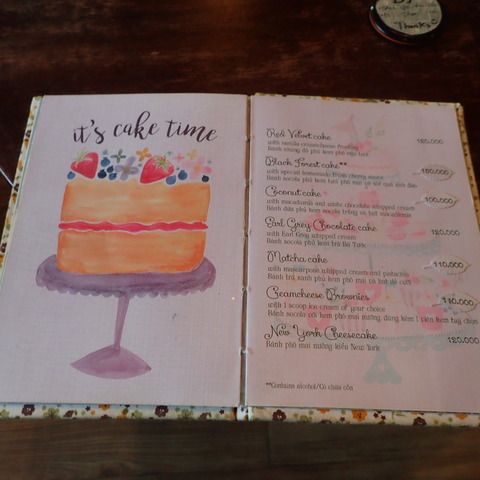 it's cake time
Thanks
Red Velvet cake 120.000
with vanilla creamcheese frosting
Bánh nhung đỏ phủ kem phô mai tươi
Black Forest cake** 120.000
with special homemade fresh cherry sauce
Coconut cake 100.000
with macadamia and white chocolate whipped cream
Bánh dừa phủ kem socola trắng và hạt macadamia
Earl Grey Chocolate cake 120.000
with Earl Grey whipped cream
Bánh socola phủ kem trà Bá Tước
Matcha cake 110.000
with mascarpone whipped cream and pistachio
Bánh trà xanh phủ kem phô mai và hạt dẻ cười
Creamcheese Brownies 110.000
with 1 scoop ice-cream of your choice
Bánh socola cốt kem phô mai nướng dùng kèm 1 viên kem tuỳ chọn
New York Cheesecake 120.000
Bánh phô mai nướng kiểu New York
**Contains alcohol/Có chứa cồn